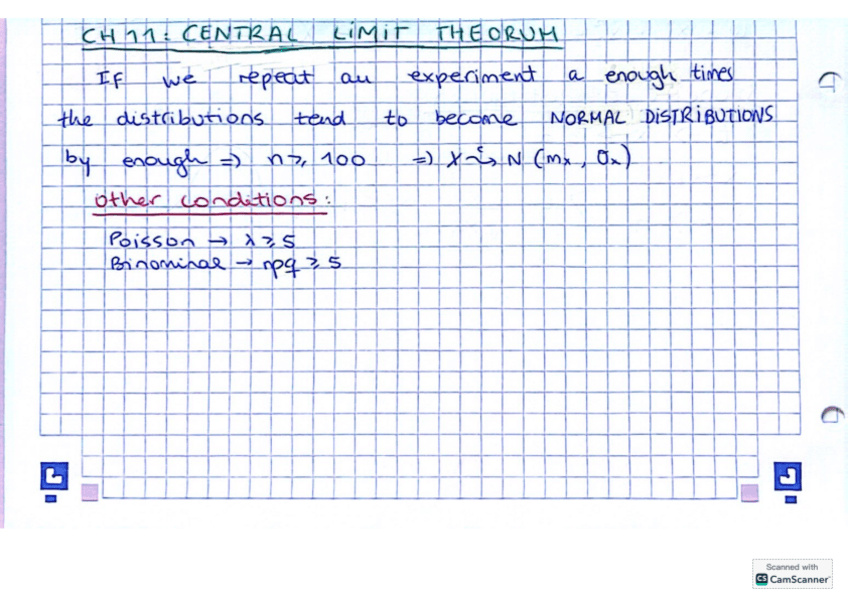 CH 11: CENTRAL LIMIT THEORUM
IF we repeat an experiment a enough times
the distributions tend to become NORMAL DISTRIBUTIONS
by enough => n ≥ 100 => X ~> N (mx, σx)
other conditions:
Poisson → λ ≥ 5
Binominal → npq ≥ 5
Scanned with
CS CamScanner